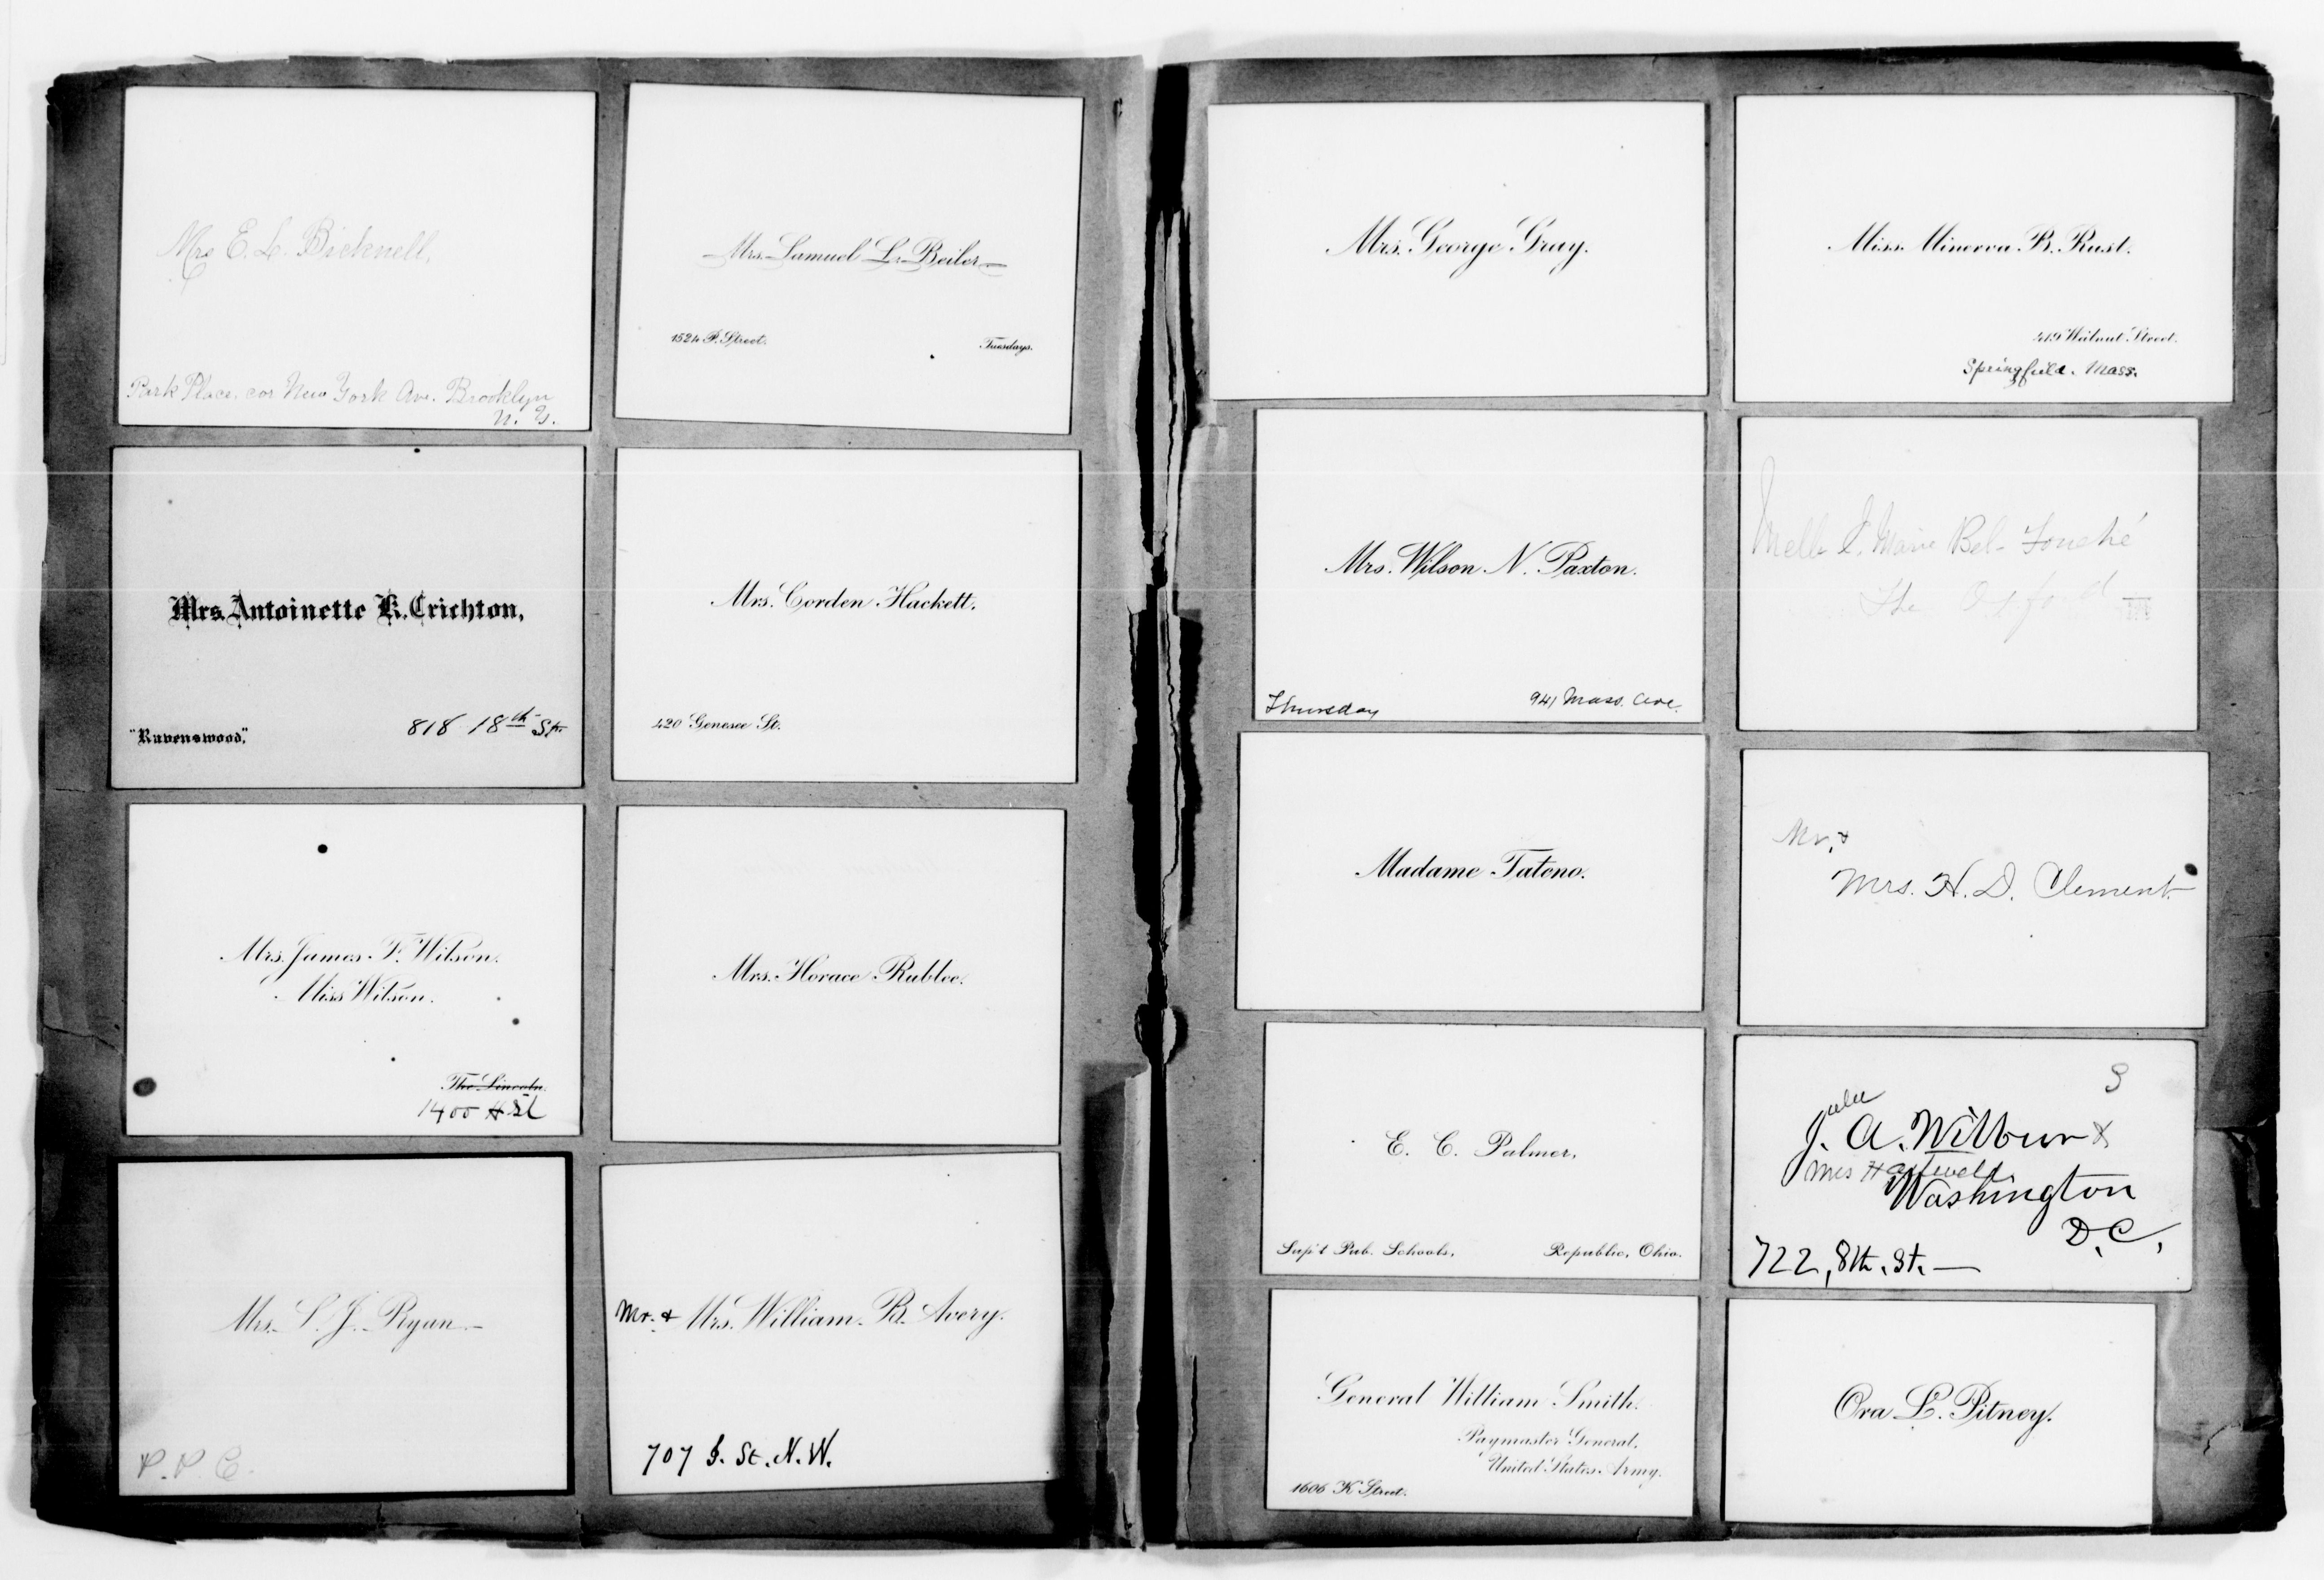 Mrs E. L. Bicknell,
Park Place. cor New York Ave. Brooklyn
N. Y.
Mrs. Samuel L. Beiler
1524 P. Street. Tuesdays.
Mrs. Antoinette K. Crichton,
"Ravenswood." 818 18th St.
Mrs. Corden Hackett.
420 Genesee St.
Mrs. James F. Wilson.
Miss Wilson.
The Lincoln.
1400 H St
Mrs. Horace Rublee.
Mrs. S. J. Ryan
P. P. C.
Mr. & Mrs. William B. Avery.
707 I. St. N. W.
Mrs. George Gray.
Miss Minerva B. Rust.
419 Walnut Street.
Springfield. Mass.
Mrs. Wilson N. Paxton.
Thursday 941 Mass. Ave.
Melle Marie Bel- Fouché
The Oxford
Madame Tateno.
Mr. &
Mrs. H. D. Clement
E. C. Palmer,
Sup't Pub. Schools, Republic, Ohio.
J. A. Wilbur &
Mrs
Washington
D. C.,
722, 8th. St.
General William Smith.
Paymaster General,
United States Army.
1606 K Street.
Ora L. Pitney.